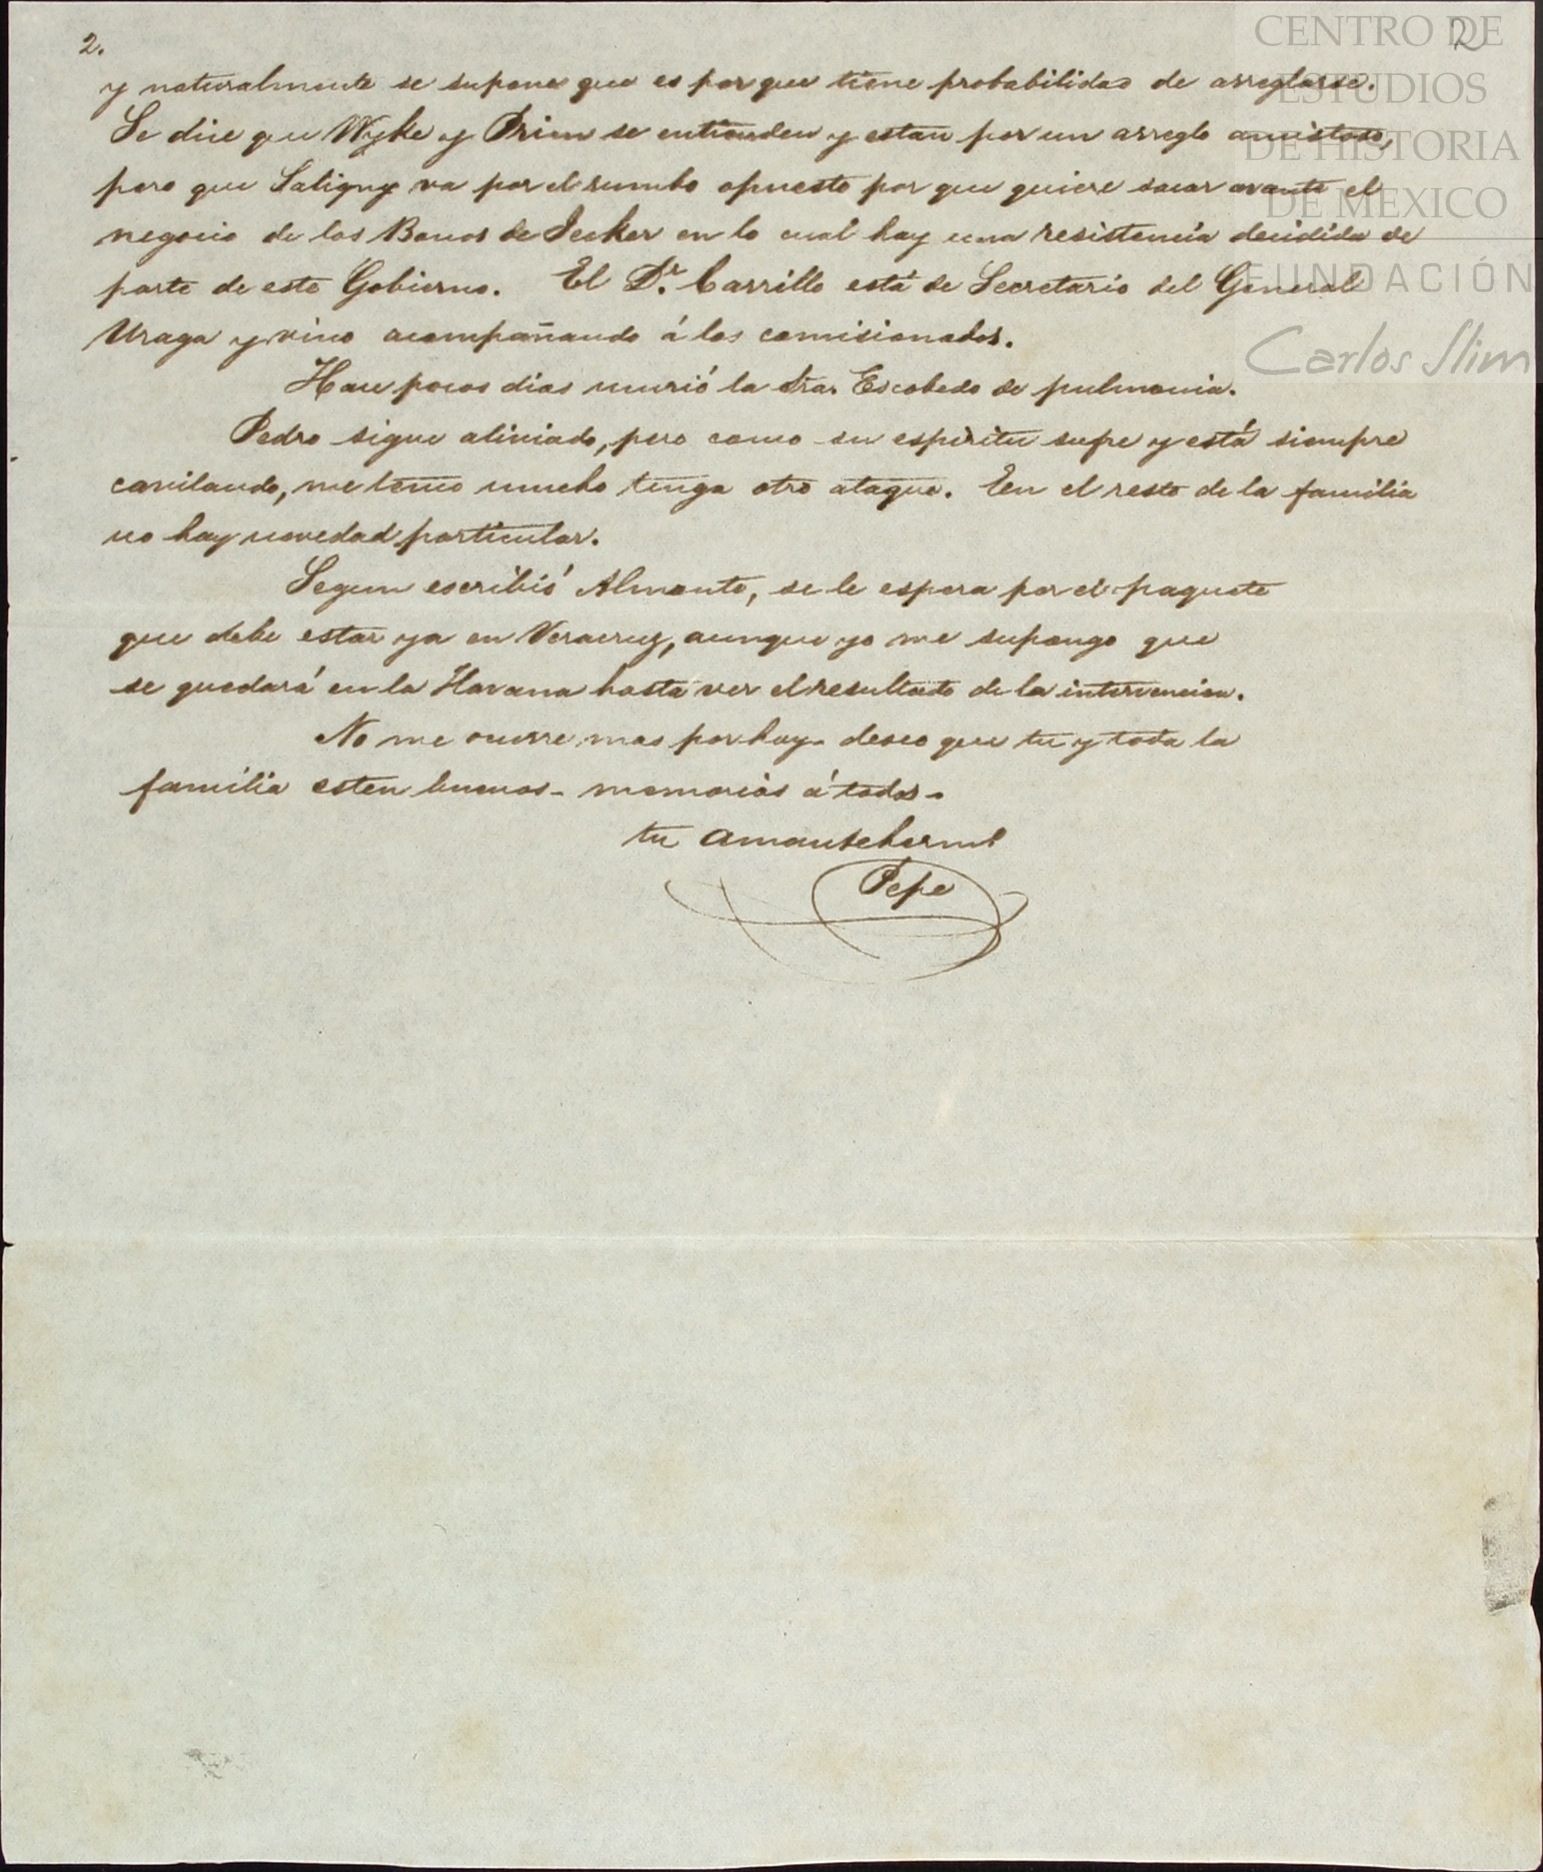 2.
2
y naturalmente se supone que es porque tiene probabilidad de arreglarse.
Se dice que Wyke y Prim se entienden y estan por un arreglo amistoso,
pero que Saligny va por el rumbo opuesto por que quiere sacar avante el
negocio de los Bonos de Jecker en lo cual hay una resistencia decidida de
parte de este Gobierno. El Dr. Carrillo está de Secretario del General
Uraga y vino acompañando á los comisionados.
Hace pocos dias murió la Sra. Escobedo de pulmonia.
Pedro sigue aliviado, pero como su espiritu sufre y está siempre
cavilando, me temo mucho tenga otro ataque. En el resto de la familia
no hay novedad particular.
Segun escribió Almonte, se le espera por el paquete
que debe estar ya en Veracruz, aunque yo me supongo que
se quedará en la Havana hasta ver el resultado de la intervencion.
No me ocurre mas por hoy - deseo que tu y toda la
familia esten buenos - memorias á todos -
tu amante herm.º
Pepe
CENTRO DE
ESTUDIOS
DE HISTORIA
DE MEXICO
FUNDACIÓN
Carlos Slim